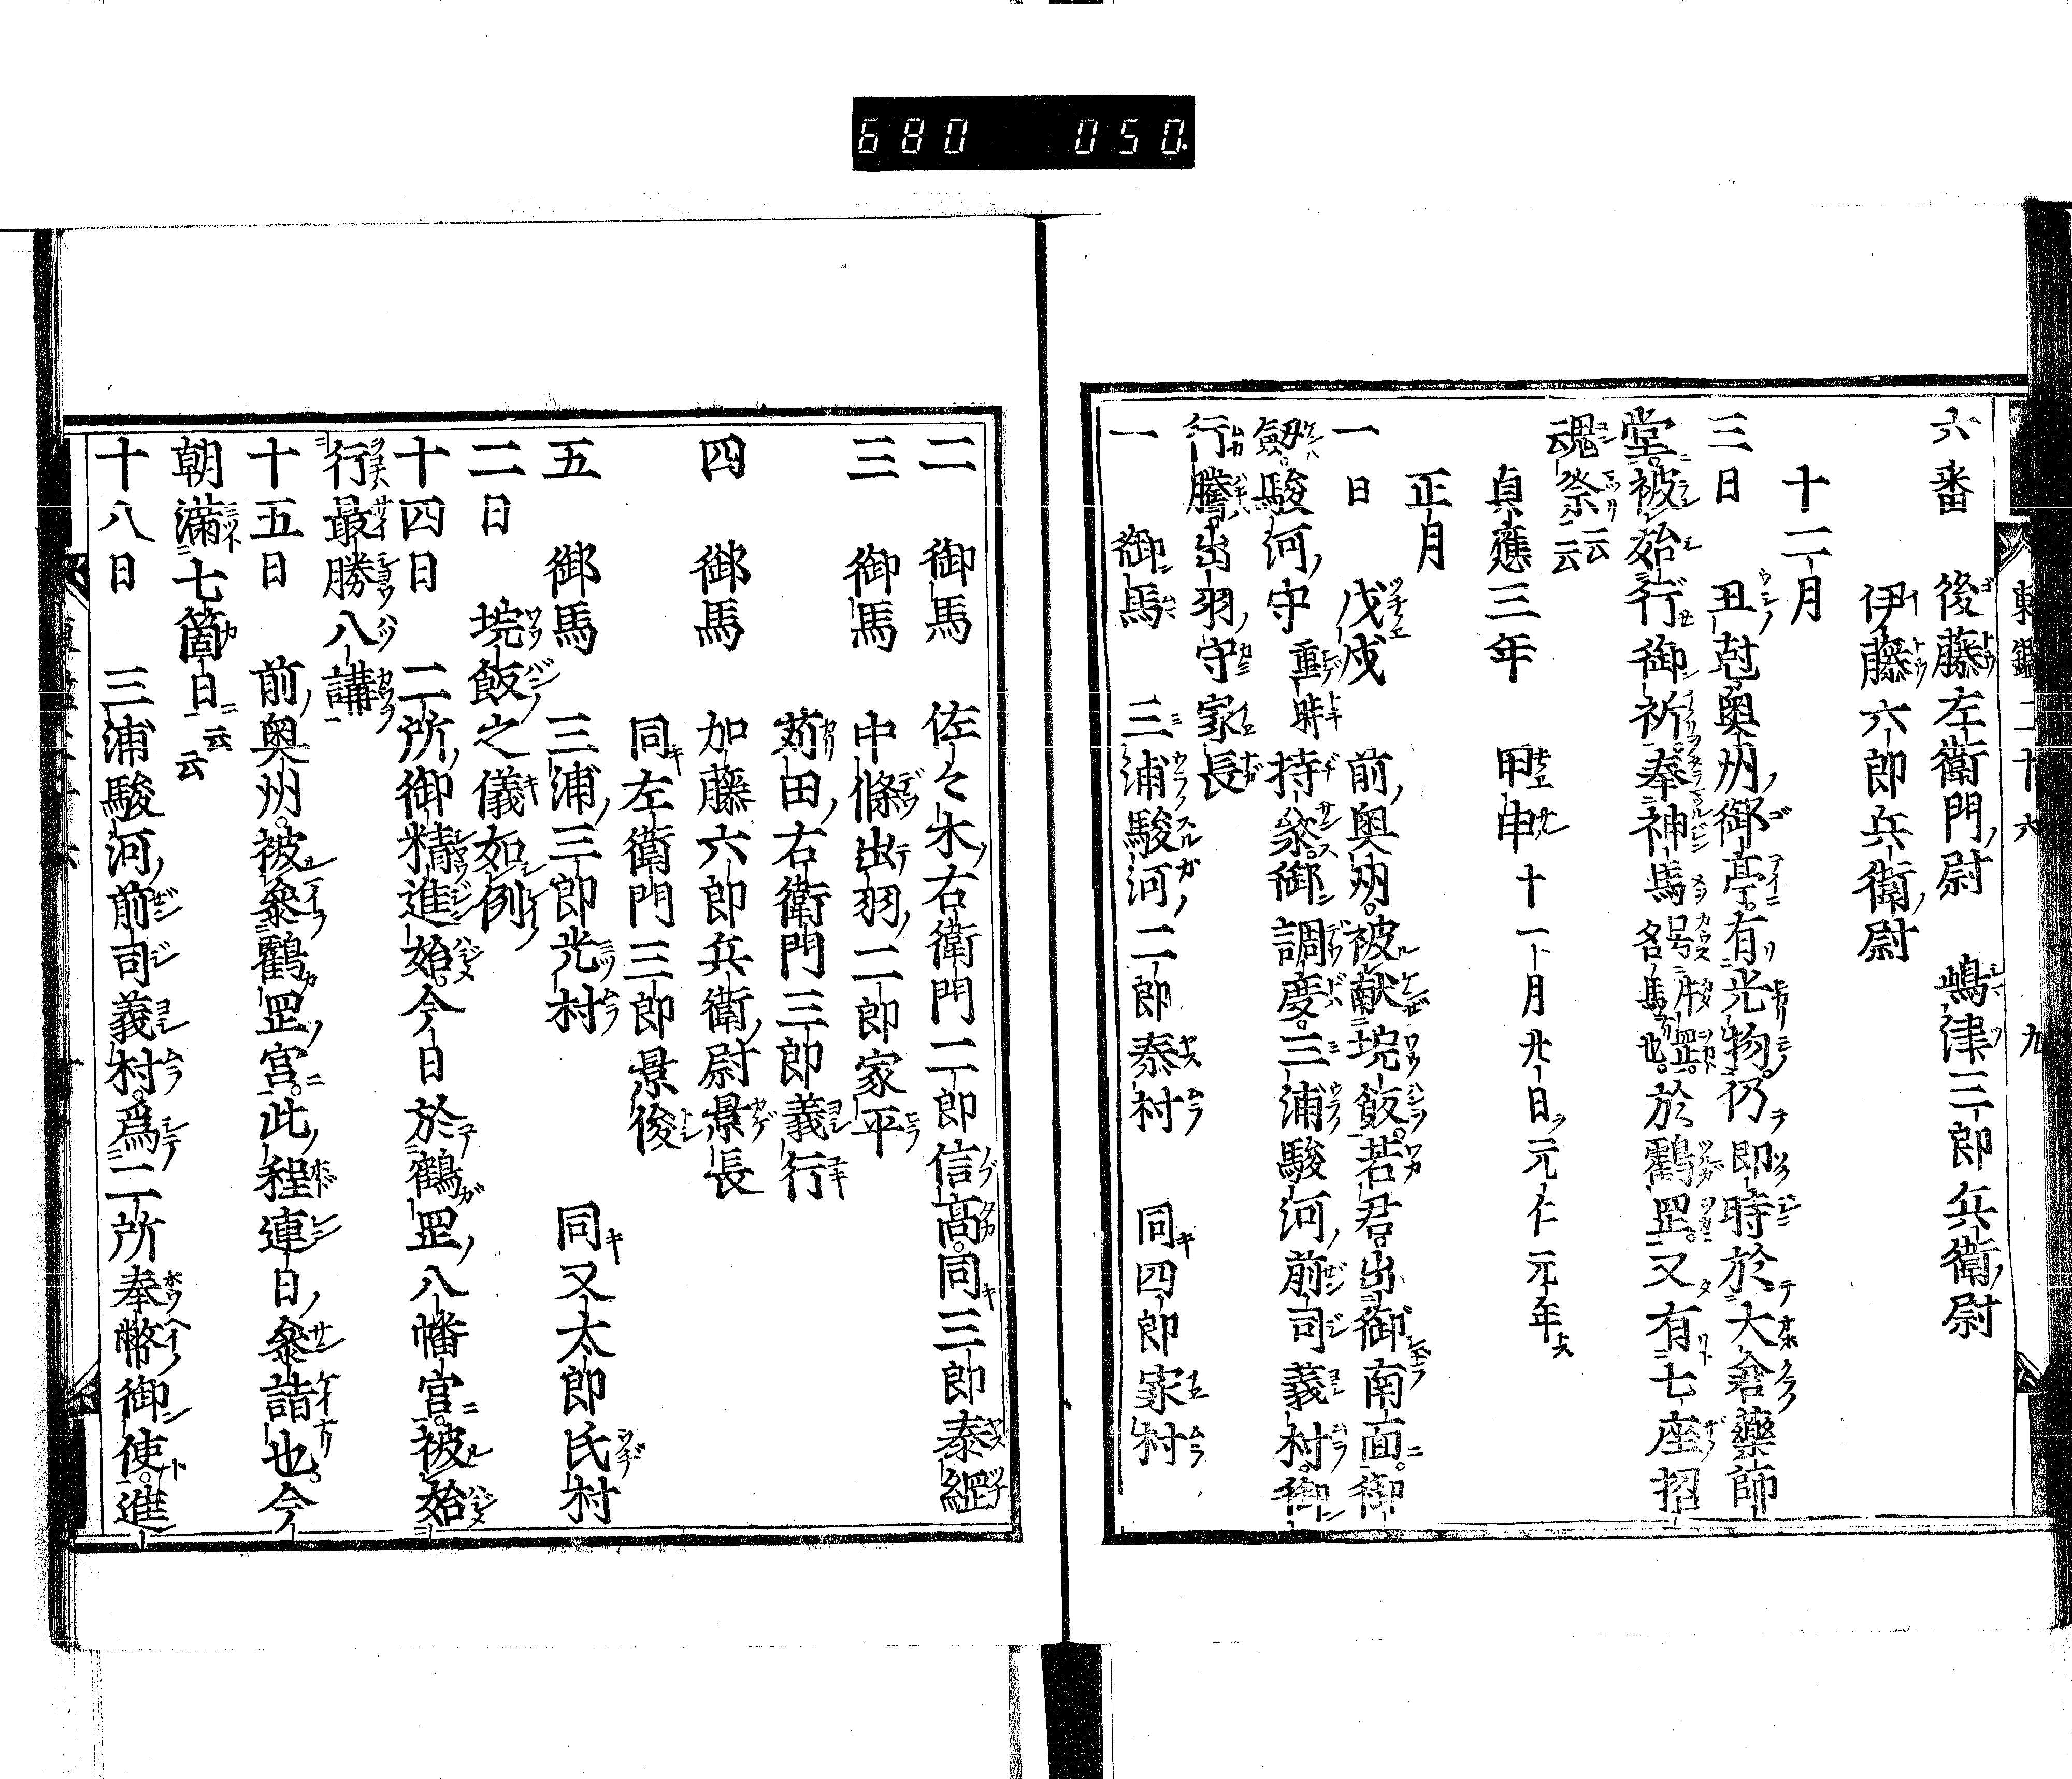 680 050
東鑑二十六 九
六番 後藤左衛門尉 嶋津三郎兵衛尉
伊藤六郎兵衛尉
十二月
三日 丑尅奥州御亭有光物仍即時於大倉藥師
堂被始行御祈奉神馬号片岡名馬也於鶴罡又有七座招
魂祭云云
貞應三年 甲申十一月廿日元仁元年ト爲
正月
一日 戊戌 前奥州被献埦飯若君出御南面御
劔駿河守重時持参御調度三浦駿河前司義村御
行騰出羽守家長
一 御馬 三浦駿河二郎泰村 同四郎家村
二 御馬 佐々木右衛門二郎信髙同三郎泰綱
三 御馬 中條出羽二郎家平
苅田右衛門三郎義行
四 御馬 加藤六郎兵衛尉景長
同左衛門三郎景俊
五 御馬 三浦三郎光村 同又太郎氏村
二日 埦飯之儀如例
十四日 二所御精進始今日於鶴罡八幡宮被始
行最勝八講
十五日 前奥州被参鶴罡宮此程連日参詣也今
朝満七箇日云云
十八日 三浦駿河前司義村爲二所奉幣御使進